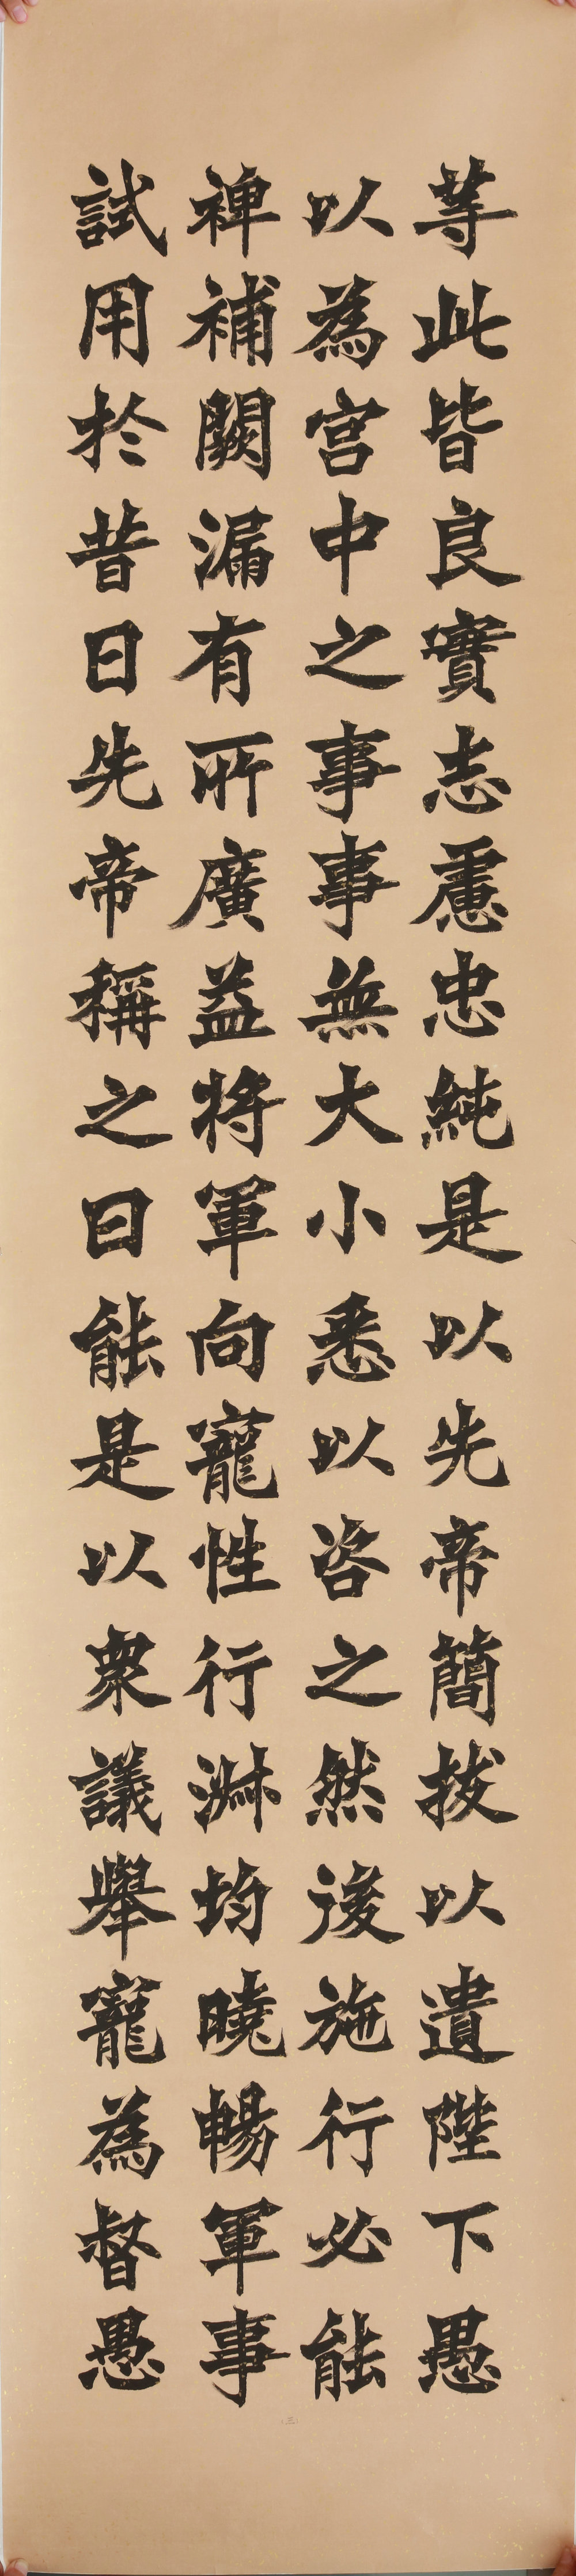 等此皆良實志慮忠純是以先帝簡拔以遺陛下愚
以為宮中之事事無大小悉以咨之然後施行必能
裨補闕漏有所廣益將軍向寵性行淑均曉暢軍事
試用於昔日先帝稱之曰能是以衆議舉寵為督愚
(三)